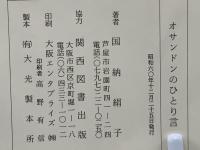 オサンドンのひとり言
昭和六〇年十二月二十五日発行
著者 国納絹子
芦屋市岩園町四ー二四
電話〇七九七(二二)〇二五〇
協力 関西図書出版
大阪市西区京町堀一ー一ー八
電話(〇六)四四三ー二二三二
印刷 大阪エンタプライズ㈱
印刷者 高野有信
製本 ㈲大光製本所